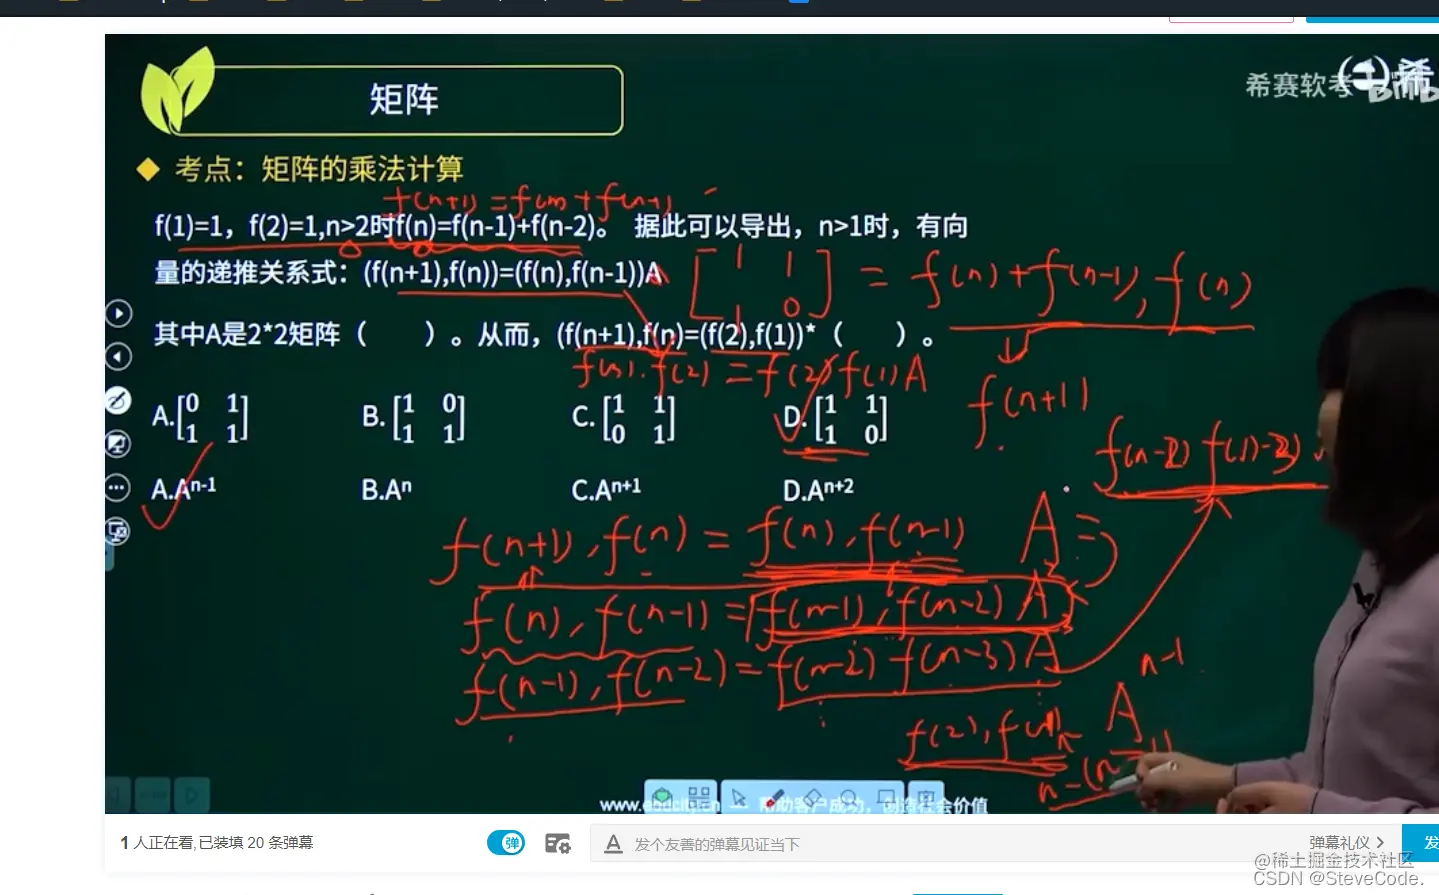 矩阵
希赛软考
希
考点：矩阵的乘法计算
f(n+1)=f(n)+f(n-1)
f(1)=1，f(2)=1,n>2时f(n)=f(n-1)+f(n-2)。 据此可以导出，n>1时，有向
量的递推关系式：(f(n+1),f(n))=(f(n),f(n-1))A
[1 1
1 0] = f(n)+f(n-1), f(n)
f(n+1)
其中A是2*2矩阵（ ）。从而，(f(n+1),f(n)=(f(2),f(1))*（ ）。
f(3),f(2) = f(2),f(1)A
A.[0 1
1 1] B.[1 0
1 1] C.[1 1
0 1] D.[1 1
1 0]
A.Aⁿ⁻¹ B.Aⁿ C.Aⁿ⁺¹ D.Aⁿ⁺²
f(n+1), f(n) = f(n), f(n-1) A ⇒
f(n), f(n-1) = f(n-1), f(n-2) A
f(n-1), f(n-2) = f(n-2) f(n-3) A
n-1
A
f(2), f(1)
www.educity.cn — 帮助客户成功，创造社会价值
1 人正在看, 已装填 20 条弹幕
弹
A
发个友善的弹幕见证当下
弹幕礼仪 >
发
@稀土掘金技术社区
CSDN @SteveCode.